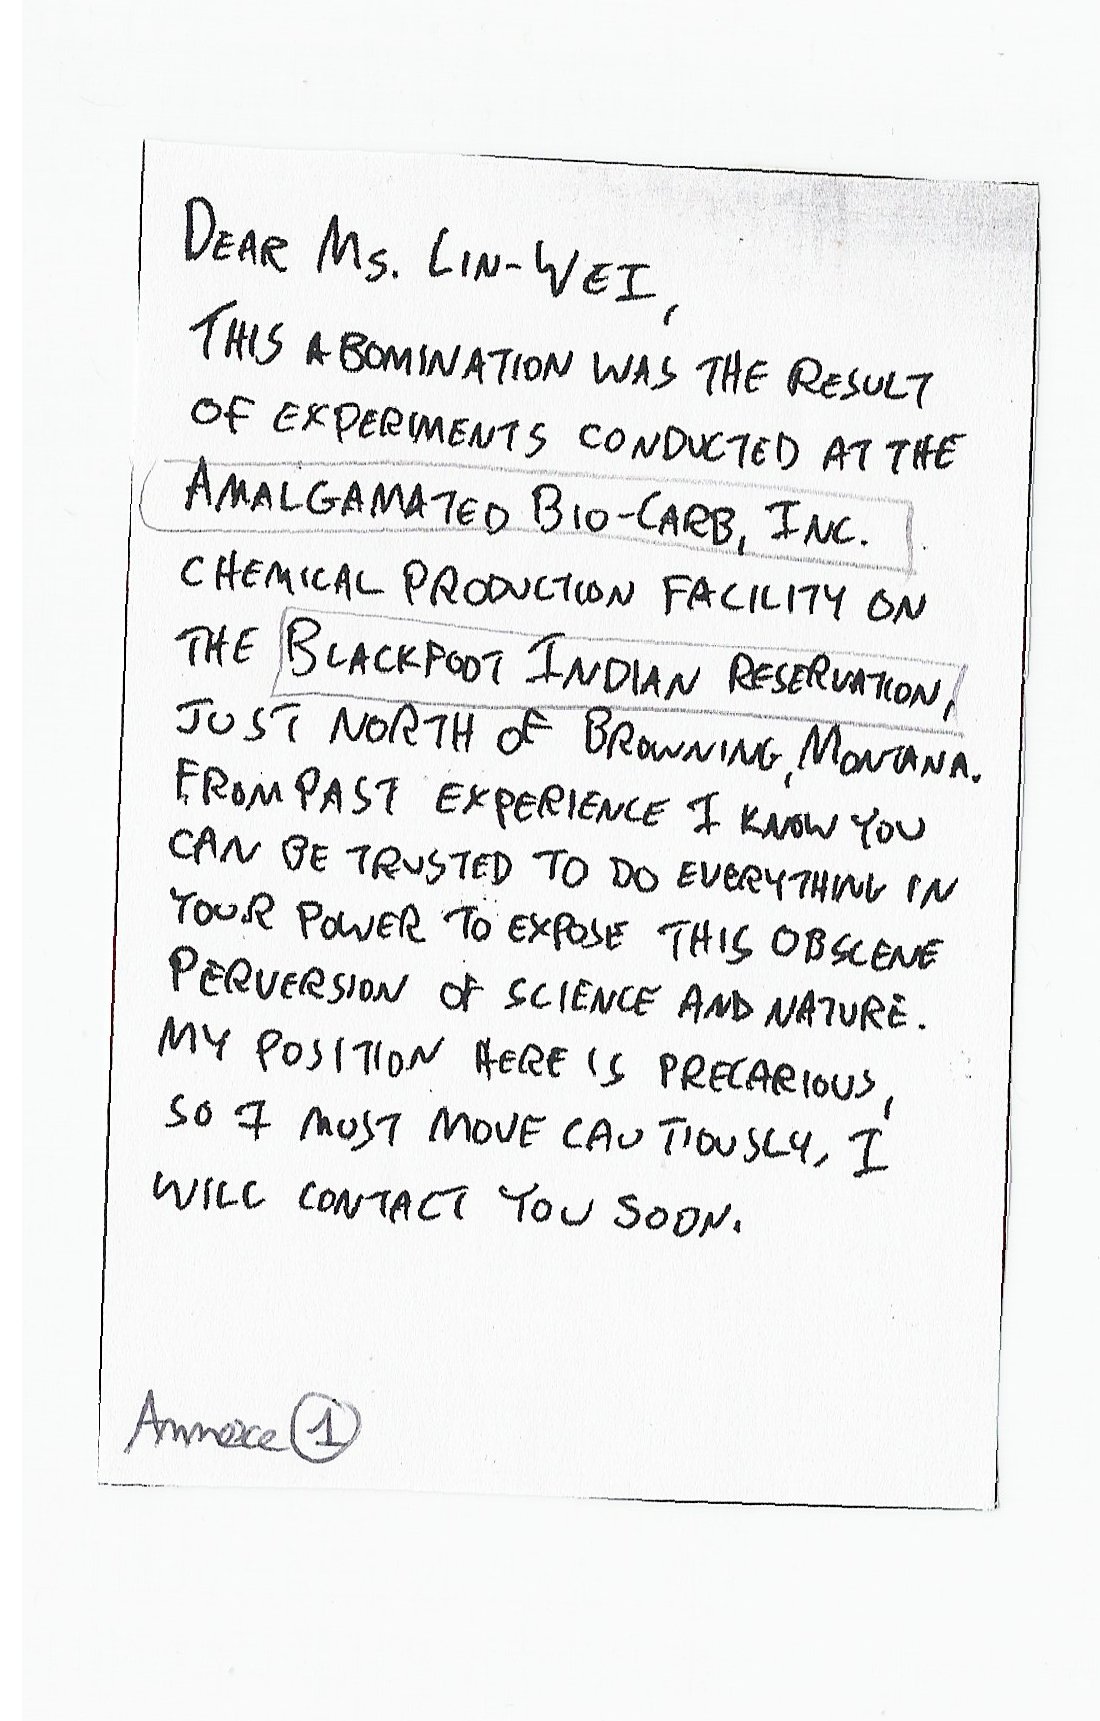 DEAR MS. LIN-WEI,
THIS ABOMINATION WAS THE RESULT
OF EXPERIMENTS CONDUCTED AT THE
AMALGAMATED BIO-CARB, INC.
CHEMICAL PRODUCTION FACILITY ON
THE BLACKFOOT INDIAN RESERVATION,
JUST NORTH OF BROWNING, MONTANA.
FROM PAST EXPERIENCE I KNOW YOU
CAN BE TRUSTED TO DO EVERYTHING IN
YOUR POWER TO EXPOSE THIS OBSCENE
PERVERSION OF SCIENCE AND NATURE.
MY POSITION HERE IS PRECARIOUS,
SO I MUST MOVE CAUTIOUSLY, I
WILL CONTACT YOU SOON.
Annexe 1